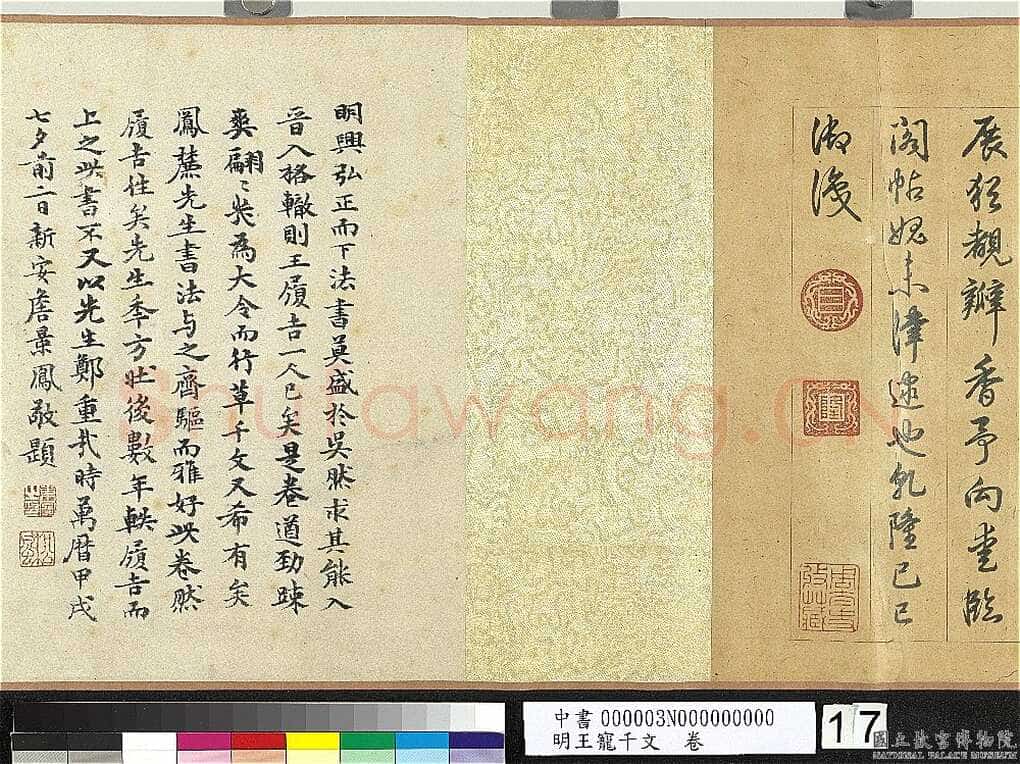 展 觀辦香予向書臨
閣帖媿未津逮也乾隆己巳
御
明興弘正而下法書莫盛於吳然求其能入
晉人格轍則王履吉一人已矣是卷遒勁疎
爽翩〻 為大令而行草千文又希有矣
鳳麓先生書法与之齊驅而雅好此卷然
履吉往矣先生年方壯後數年軼履吉而
上之此書不又以先生鄭重哉時萬曆甲戌
七夕前二日新安詹景鳳敬題
Shufawang.CN
中書 000003N000000000
明王寵千文 卷
17
國立故宮博物院
NATIONAL PALACE MUSEUM